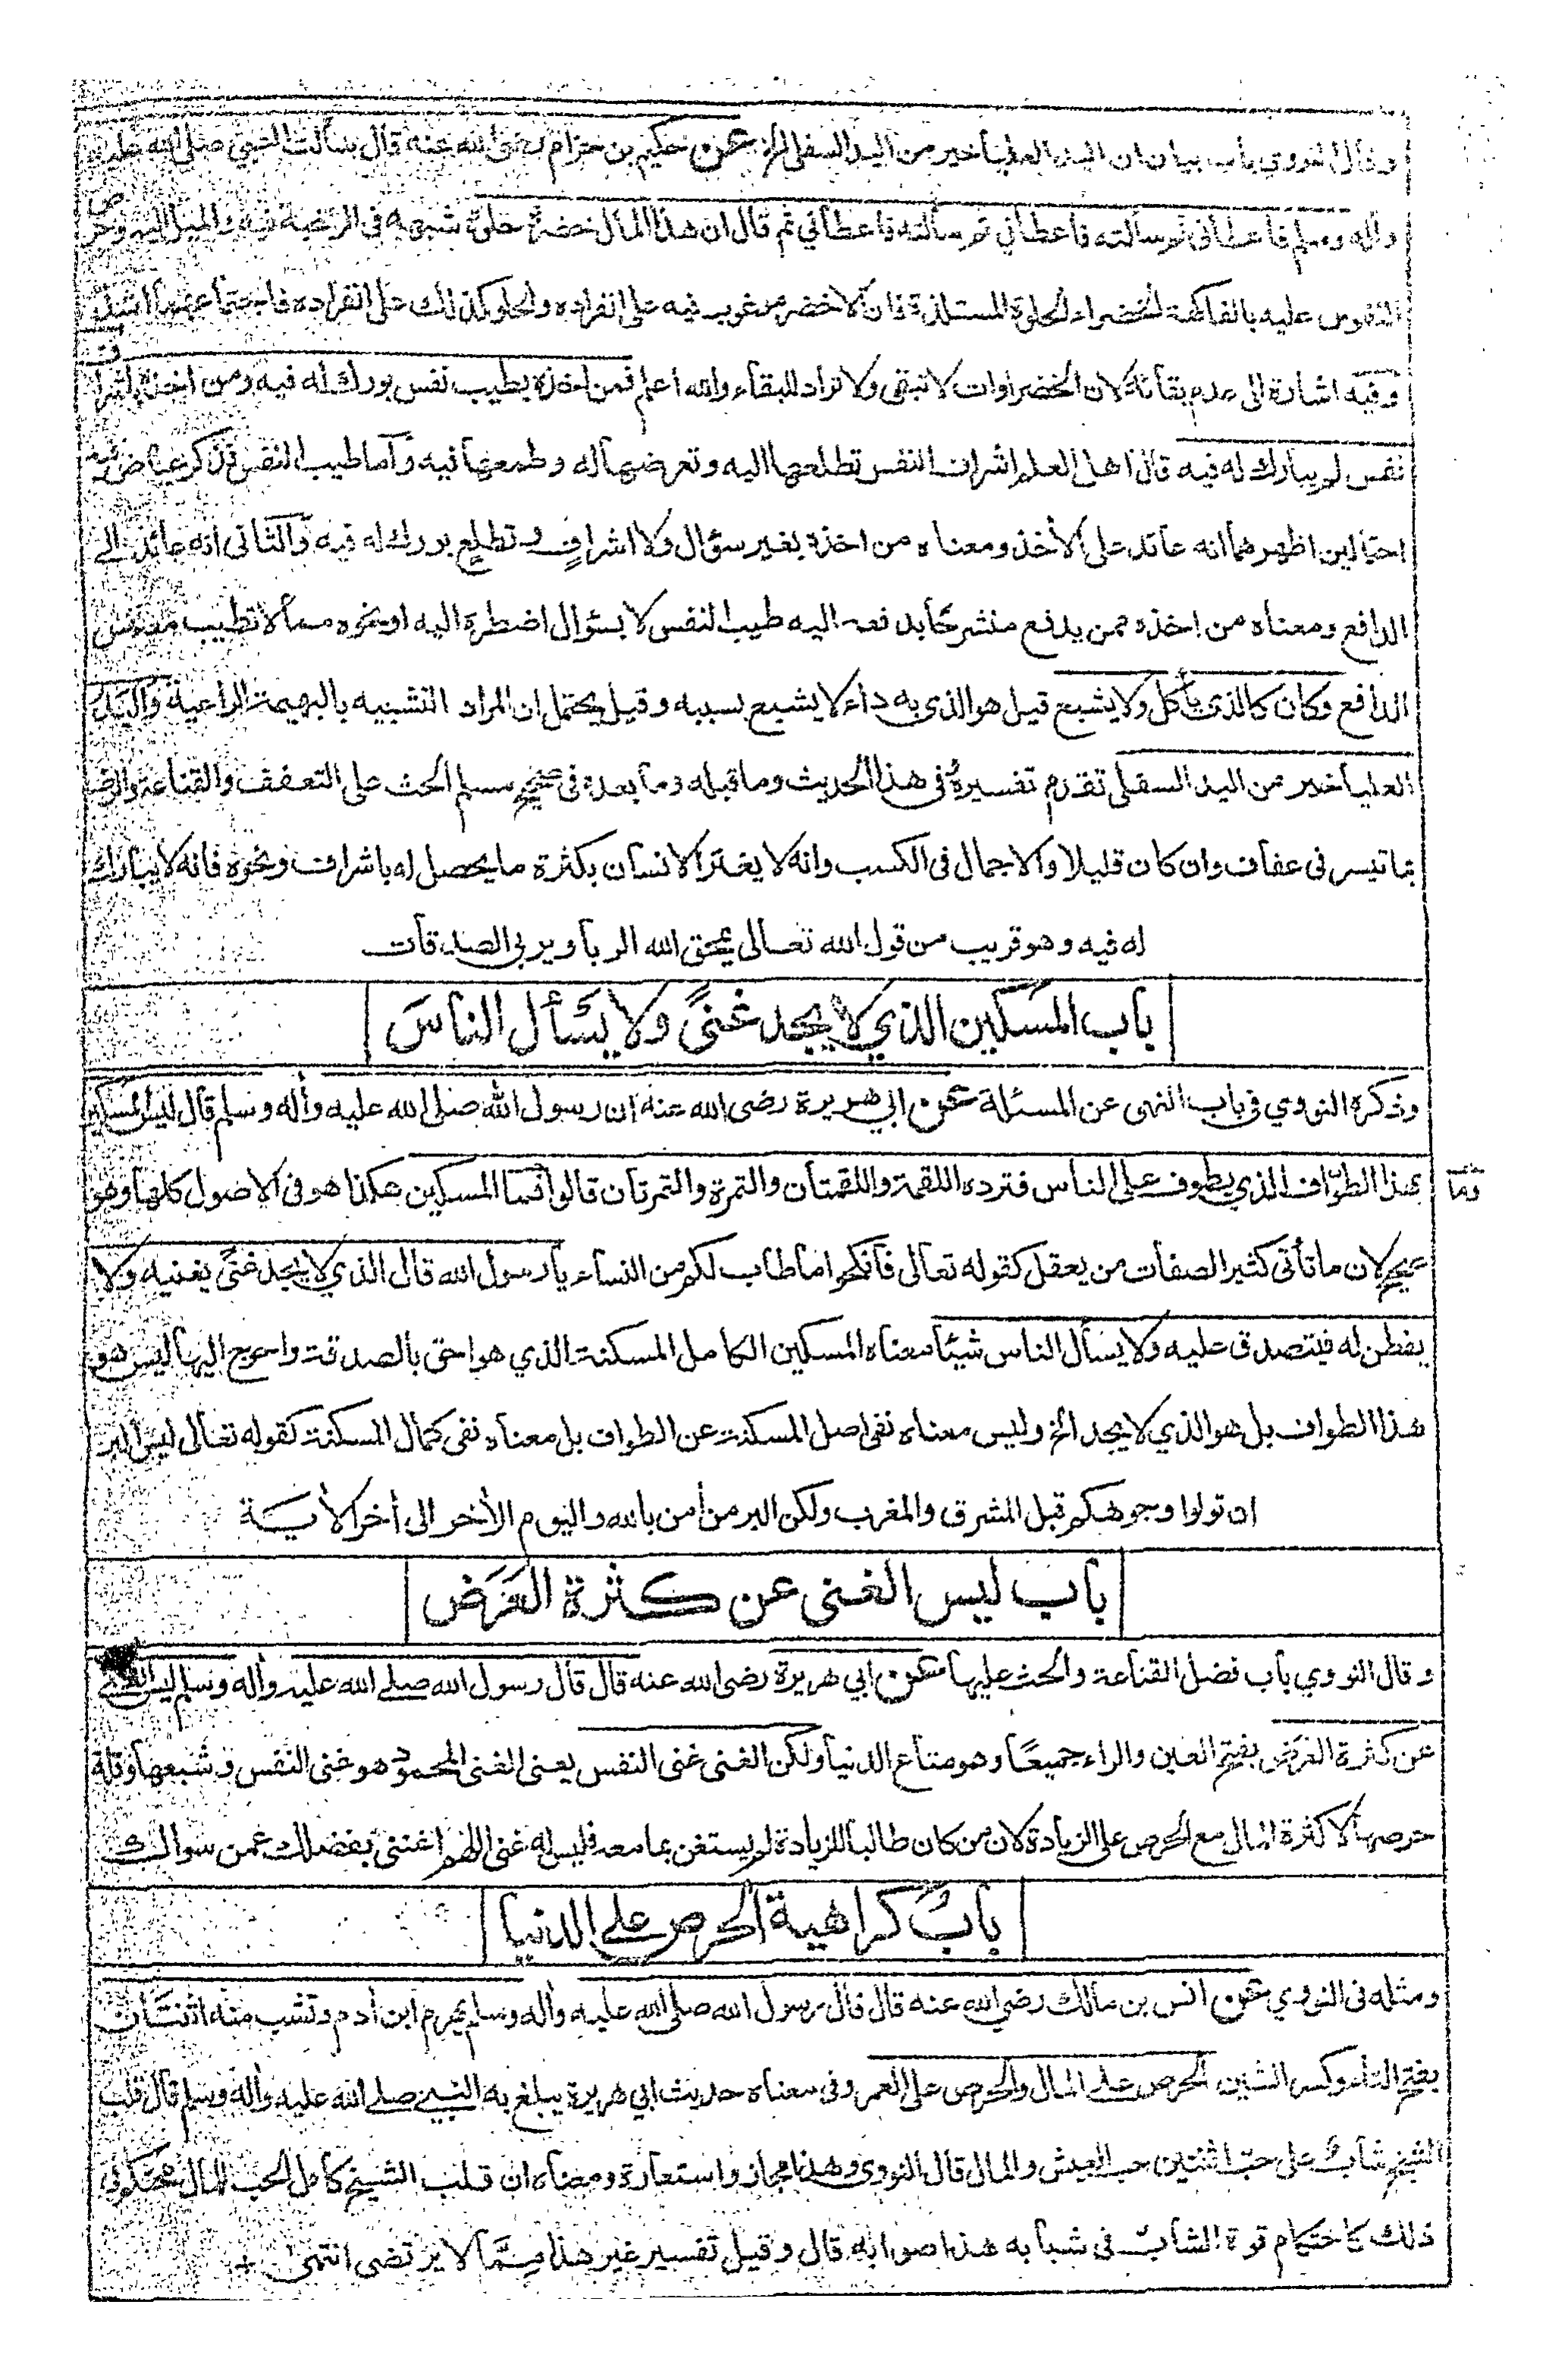 وقال النووي باب بيان ان اليد العليا خير من اليد السفلى الخ عن حكيم بن حزام رضي الله عنه قال سألت النبي صلى الله عليه
واٰله وسلم فاعطاني ثم سألته فاعطاني ثم سألته فاعطاني ثم قال ان هذا المال خضرة حلوة شبهه في الرغبة فيه والميل اليه وحرص
النفوس عليه بالفاكهة الخضراء الحلوة المستلذة فان الاخضر مرغوب فيه على انفراده والحلو كذلك على انفراده فاجتماعهما اشد
وفيه اشارة الى عدم بقائه لان الخضراوات لا تبقى ولا تراد للبقاء والله اعلم فمن اخذه بطيب نفس بورك له فيه ومن اخذه باشراف
نفس لم يبارك له فيه قال اهل العلم اشراف النفس تطلعها اليه وتعرضها له وطمعها فيه واما طيب النفس فذكر عياض فيه
احتمالين اظهرهما انه عائد على الاٰخذ ومعناه من اخذه بغير سؤال ولا اشراف وتطلع بورك له فيه والثاني انه عائد الى
الدافع ومعناه من اخذه ممن يدفع منشرحا بدفعه اليه طيب النفس لا بسؤال اضطره اليه او نحوه مما لا تطيب معه نفس
الدافع وكان كالذي يأكل ولا يشبع قيل هو الذي به داء لا يشبع بسببه وقيل يحتمل ان المراد التشبيه بالبهيمة الراعية واليد
العليا خير من اليد السفلى تقدم تفسيره في هذا الحديث وما قبله وما بعده في صحيح مسلم الحث على التعفف والقناعة والرضا
بما تيسر في عفاف وان كان قليلا والاجمال في الكسب وانه لا يغتر الانسان بكثرة ما يحصل له باشراف ونحوه فانه لا يبارك
له فيه وهو قريب من قول الله تعالى يمحق الله الربا ويربي الصدقات
باب المسكين الذي لا يجد غنىً ولا يسأل الناس
وذكره النووي في باب النهى عن المسئلة عن ابي هريرة رضى الله عنه ان رسول الله صلى الله عليه واٰله وسلم قال ليس المسكين
بهذا الطوّاف الذي يطوف على الناس فترده اللقمة واللقمتان والتمرة والتمرتان قالوا فما المسكين هكذا هو في الاصول كلها وهو
صحيح لان ما تأتي كثير الصفات من يعقل كقوله تعالى فانكحوا ما طاب لكم من النساء يا رسول الله قال الذي لا يجد غنىً يغنيه ولا
يفطن له فيتصدق عليه ولا يسأل الناس شيئا معناه المسكين الكامل المسكنة الذي هو احق بالصدقة واحوج اليها ليس هو
هذا الطواف بل هو الذي لا يجد الخ وليس معناه نفى اصل المسكنة عن الطواف بل معناه نفى كمال المسكنة كقوله تعالى ليس البر
ان تولوا وجوهكم قبل المشرق والمغرب ولكن البر من اٰمن بالله واليوم الاٰخر الى اٰخر الاٰية
باب ليس الغنى عن كثرة العَرَض
وقال النووي باب فضل القناعة والحث عليها عن ابي هريرة رضى الله عنه قال قال رسول الله صلى الله عليه واٰله وسلم ليس الغنى
عن كثرة العرض بفتح العين والراء جميعًا وهو متاع الدنيا ولكن الغنى غنى النفس يعنى الغنى المحمود هو غنى النفس وشبعها وقلة
حرصها لا كثرة المال مع الحرص على الزيادة لان من كان طالبا للزيادة لم يستغن بما معه فليس له غنى اللهم اغنني بفضلك عمن سواك
باب كراهية الحرص على الدنيا
ومثله في النووي عن انس بن مالك رضي الله عنه قال قال رسول الله صلى الله عليه واٰله وسلم يهرم ابن اٰدم وتشب منه اثنتان
بفتح التاء وكسر الشين الحرص على المال والحرص على العمر وفي معناه حديث ابي هريرة يبلغ به النبي صلى الله عليه واٰله وسلم قال قلب
الشيخ شابٌ على حب اثنتين حب العيش والمال قال النووي وهذا مجاز واستعارة ومعناه ان قلب الشيخ كامل الحب للمال محتكم في
ذلك كاحتكام قوة الشاب في شبابه هذا صوابه قال وقيل تفسير غير هذا مما لا يرتضى انتهى